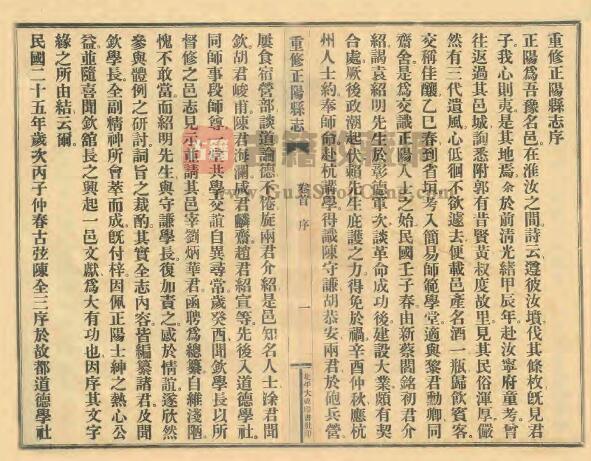 重修正陽縣志序
正陽爲吾豫名邑在淮汝之間詩云遵彼汝墳伐其條枚旣見君
子我心則夷是其地焉余於前清光緒甲辰年赴汝寧府童考曾
往返過其邑城詢悉附郭有昔賢黃叔度故里見其民俗渾厚儼
然有三代遺風心低徊不欲遽去便載邑產名酒一瓶歸飲賓客
交稱佳釀乙巳春到省垣考入簡易師範學堂適與黎君勳卿同
齋舍是爲交識正陽人之始民國壬子春由新蔡閻銘初君介
紹謁袁紹明先生於彰德軍次談革命成功後建設大業頗有契
合處厥後政潮起伏賴先生庇護之力得免於禍辛酉仲秋應杭
州人士約奉師命赴杭講學得識陳守謙胡恭安兩君於砲兵營
重修正陽縣志
卷首 序
一
屢食宿營部談道論德不倦旋兩君介紹是邑知名人士涂君聞
欽胡君峻甫陳君海瀾咸君麟齋趙君紹宣等先後入道德學社
同師事段師尊一堂共學交誼自異尋常歲癸酉聞欽學長以所
督修之邑志見示並請其邑宰劉炳華君函聘爲總纂自維淺陋
愧不敢當而紹明先生與守謙學長復加責之感於情誼遂欣然
參與體例之研討詞旨之裁酌其實全志內容皆編纂諸君及聞
欽學長全副精神所會萃而成旣付梓因佩正陽士紳之熱心公
益並隨喜聞欽舘長之興起一邑文獻爲大有功也因序其文字
緣之所由結云爾
民國二十五年歲次丙子仲春古弦陳全三序於故都道德學社